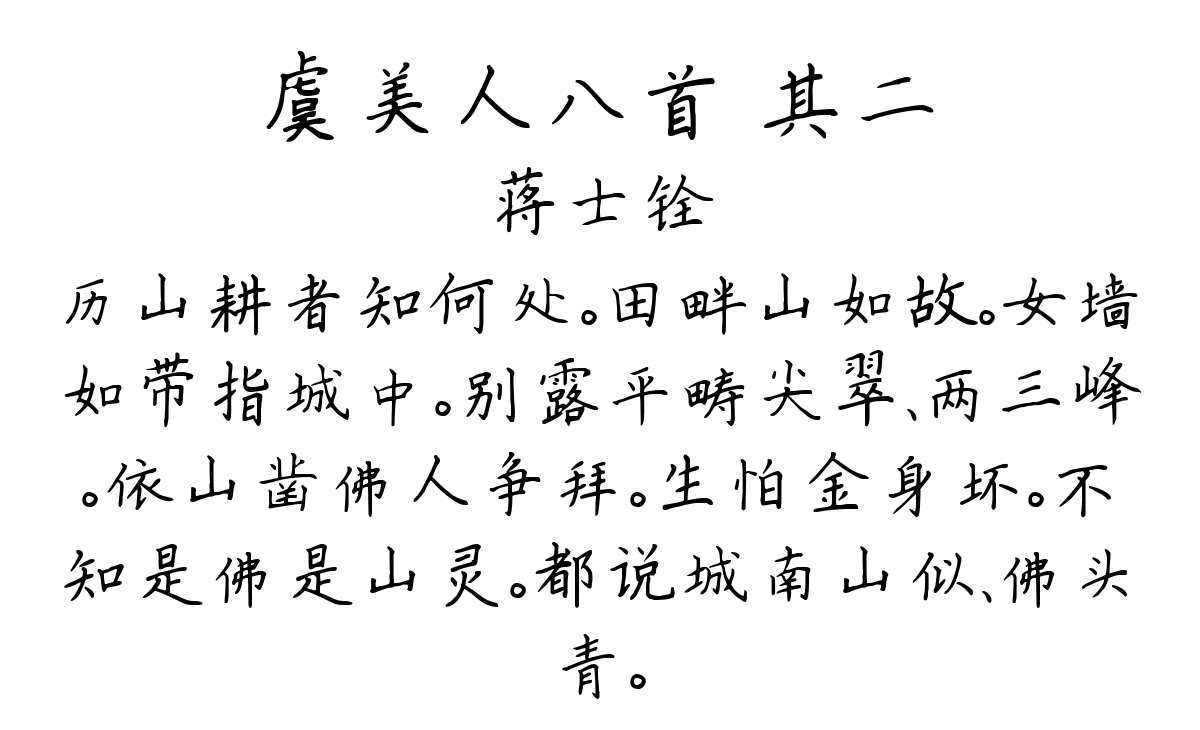 虞美人八首 其二
蒋士铨
历山耕者知何处。田畔山如故。女墙
如带指城中。别露平畴尖翠、两三峰
。依山凿佛人争拜。生怕金身坏。不
知是佛是山灵。都说城南山似、佛头
青。